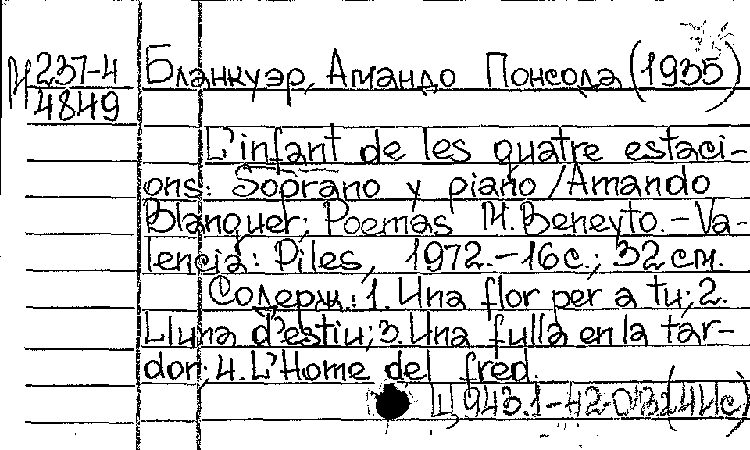 М 237-4
4849
Бланкуэр, Амандо Понсода (1935)
L'infant de les quatre estaci-
ons: Soprano y piano / Amando
Blanquer; Poemas M. Beneyto. - Va-
lencia: Piles, 1972. - 16 с.; 32 см.
Содерж.: 1. Una flor per a tu; 2.
Lluna d'estiu; 3. Una fulla en la tar-
dor; 4. L'Home del fred.
Ц 943.1-42-0/32 (4Ис)